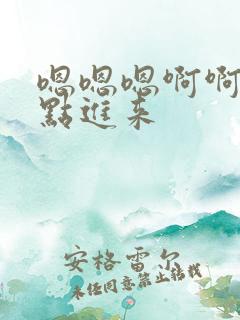 嗯嗯嗯啊啊
點進来
安格雷尔
未经同意禁止转载